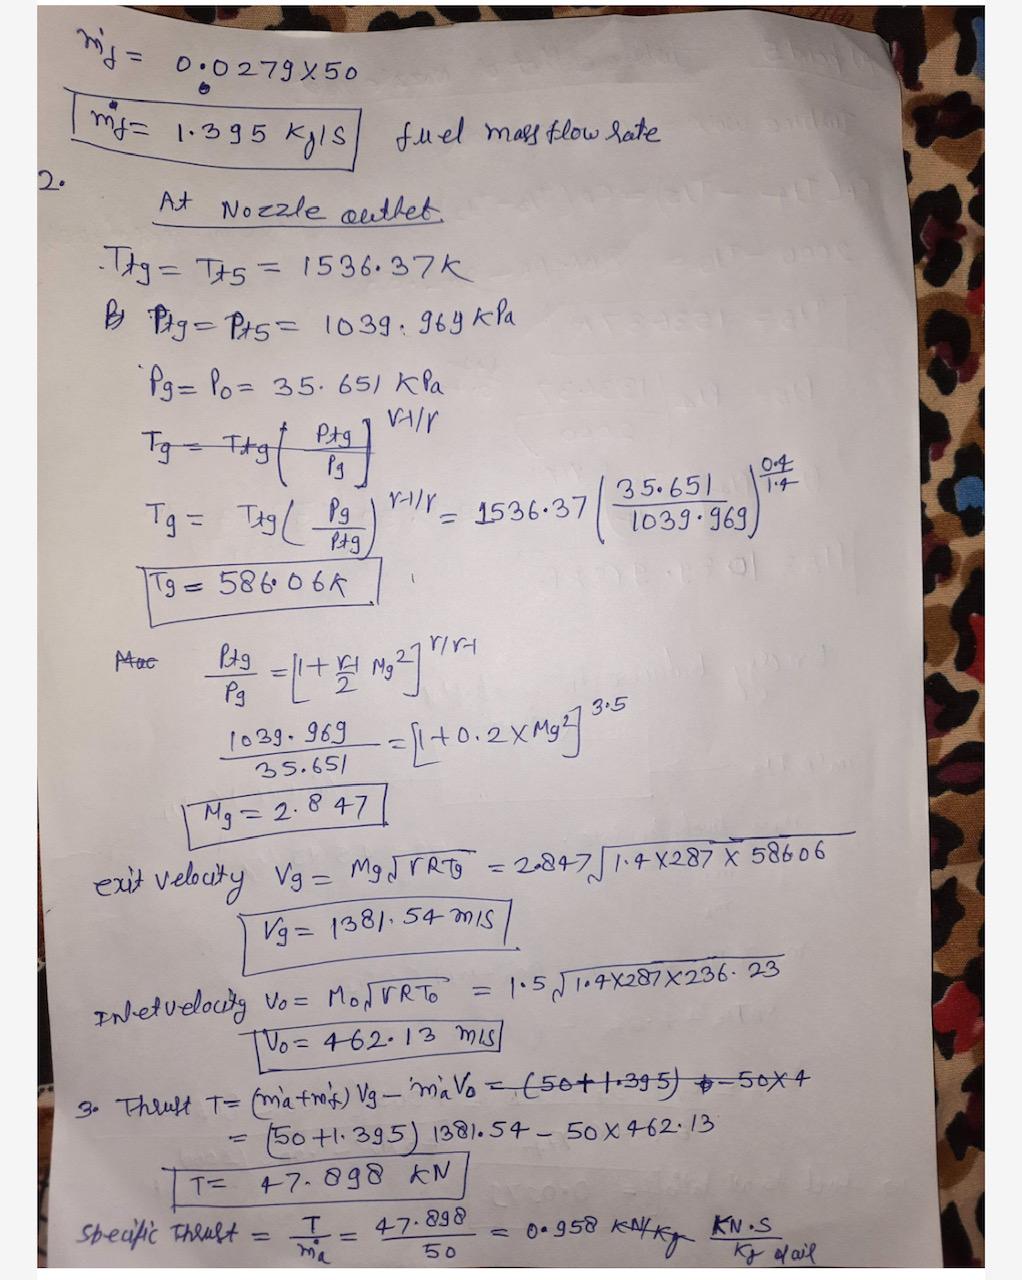 ṁf = 0.0279 X 50
ṁf = 1.395 Kg/S fuel mass flow rate
2.
At Nozzle outlet
Tt9 = Tt5 = 1536.37K
Pt9 = Pt5 = 1039.969 kPa
P9 = P0 = 35.651 KPa
T9 = Tt9 [Pt9/P9]^r-1/r
T9 = Tt9 (P9/Pt9)^r-1/r = 1536.37 (35.651/1039.969)^0.4/1.4
T9 = 586.06K
Mac Pt9/P9 = [1 + r-1/2 M9²]^r/r-1
1039.969/35.651 = [1 + 0.2 X M9²]^3.5
M9 = 2.847
exit velocity V9 = M9 √rRT9 = 2.847 √1.4 X 287 X 58606
V9 = 1381.54 m/s
Inlet velocity V0 = M0 √rRT0 = 1.5 √1.4 X 287 X 236.23
V0 = 462.13 m/s
3. Thrust T = (ṁa + ṁf) V9 – ṁa V0 = (50 + 1.395) – 50 X 4
= (50 + 1.395) 1381.54 – 50 X 462.13
T = 47.898 kN
Specific Thrust = T/ṁa = 47.898/50 = 0.958 KN/Kg KN.S/Kg of air